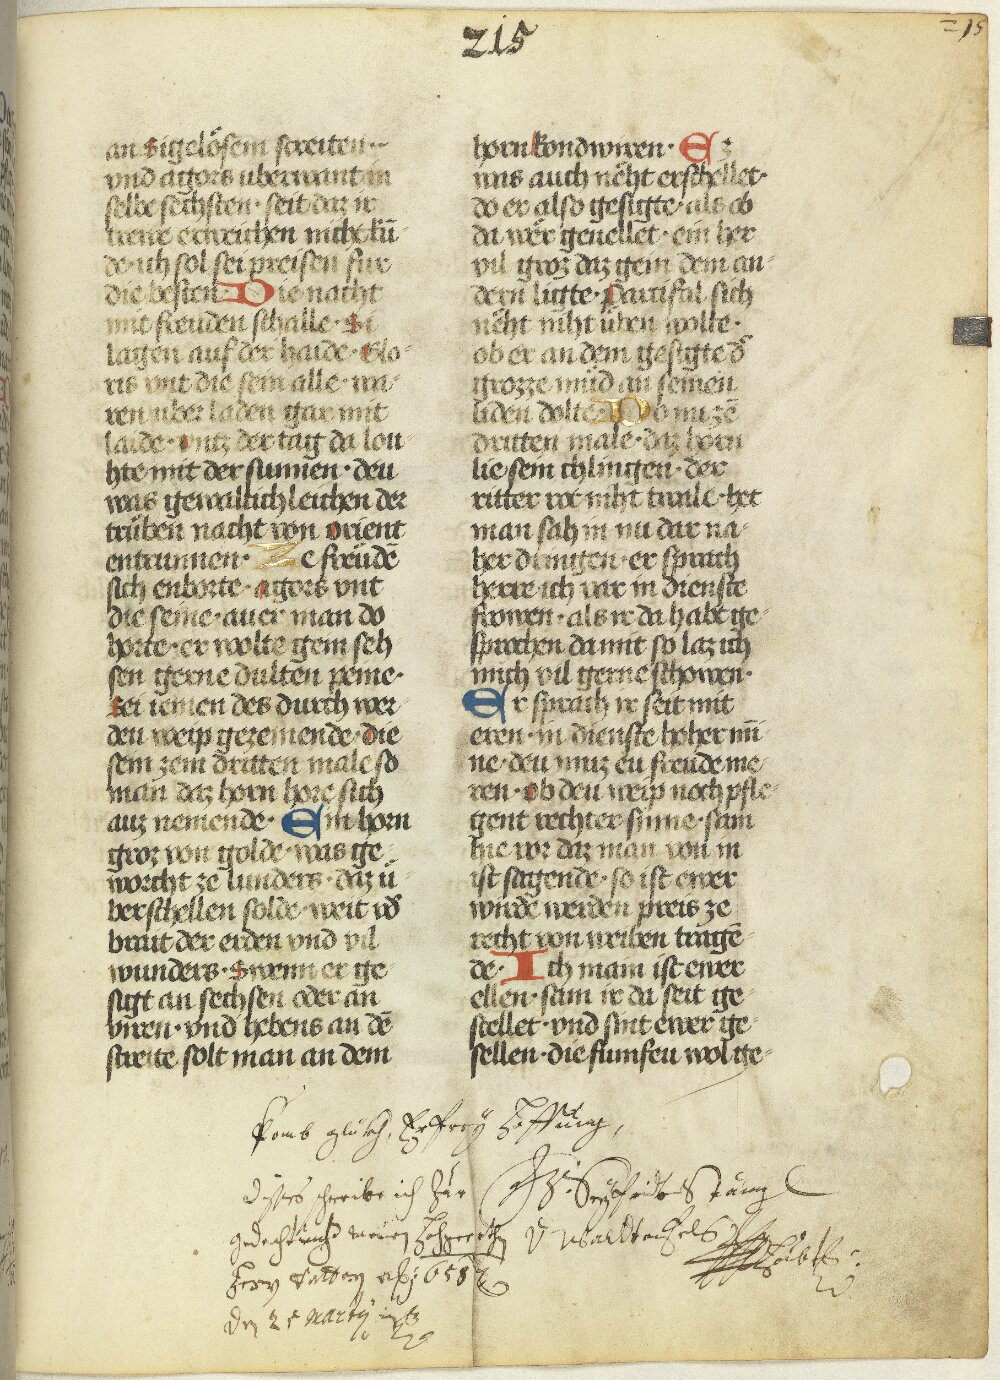 215
215
an sigelösem streiten·
vnd agors uberwant in
selbe sechsten· seit daz ir
trewe erweichen nicht kü
de· ich sol sei preisen fur
die besten· Die nacht
mit freuden schalle· Si
lagen auf der haide· Clo
ris vnt die sein alle· wa
ren uber laden gar mit
laide· vntz der tag da lou
hte mit der sunnen· deu
was gewaltichleichen der
trüben nacht von orient
entrunnen· Ze freüdē
sich enborte· agors vnt
die seine· auer man do
horte· er wolte gern seh
sen gerne dulten peine·
sei iemen des durch wer
deu weip gezemende· die
sein zem dritten male so
man daz horn hore sich
auz nemende· Ein horn
groz von golde· was ge
worcht ze lunders· daz ü
berschellen solde· weit vñ
brait der erden vnd vil
wunders· Swenn er ge
sigt an sechsen oder an
viren· vnd hebens an dē
streite solt man an dem
horn kondwiren· Ez
was auch nëht erschellet·
do er also gesigte· als ob
da wër geuellet· ein her
vil groz daz gein dem an
dern ligte· Partifal sich
nëht niht üben wolte·
ob er an dem gesigte d
grozze müd an seinen
liden dolte· Do nu zē
dritten male· daz horn
lie sein chlingen· der
ritter rot niht twale· het
man sah in nu dar na
her dringen· er sprach
herre ich var in dienste
frowen· als ir da habt ge
sprochen damit so laz ich
mich vil gerne schowen·
Er sprach ir seit mit
eren· in dienste hoher mī
ne· deu muz eu freude me
ren· ob deu weip noch pfle
gent rechter sinne· sam
hie vor daz man von in
ist sagende· so ist ewer
wirde werden preis ze
recht von weiben tragē
de· Ich main ist ewer
ellen· sam ir da seit ge
stellet· vnd sint ewer ge
sellen· die funfeu wol ge
Komb glückh, Erfrey Hoffnung,
dises schreibe ich Zur
gedechtnuß
1658
den 25 Marty